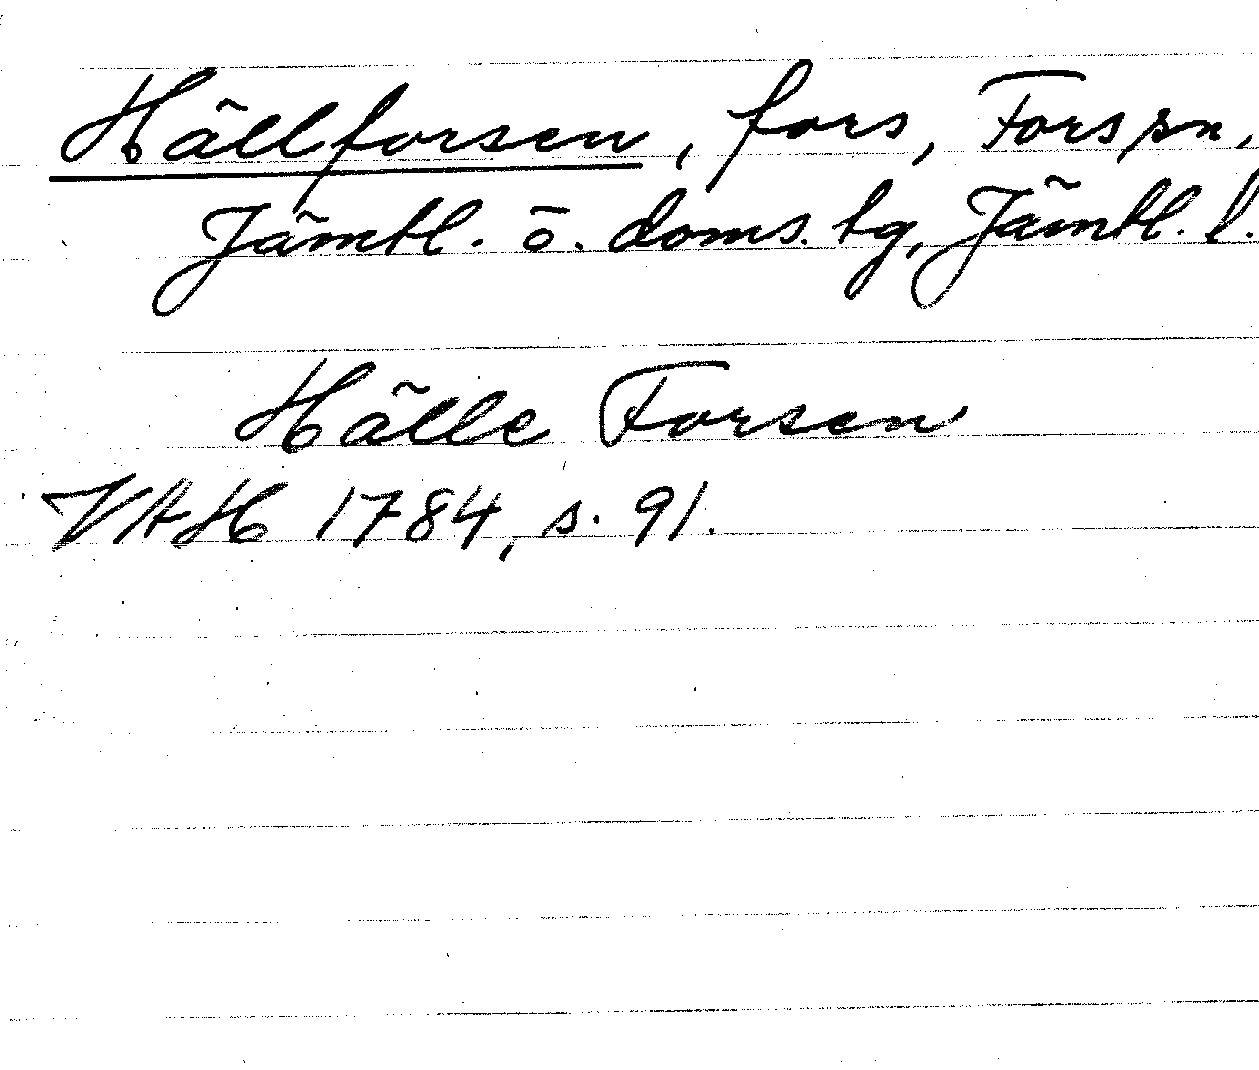 Hällforsen, fors, Fors sn,
Jämtl. ö. doms. tg, Jämtl. l.
Hälle Forsen
VAH 1784, s. 91.